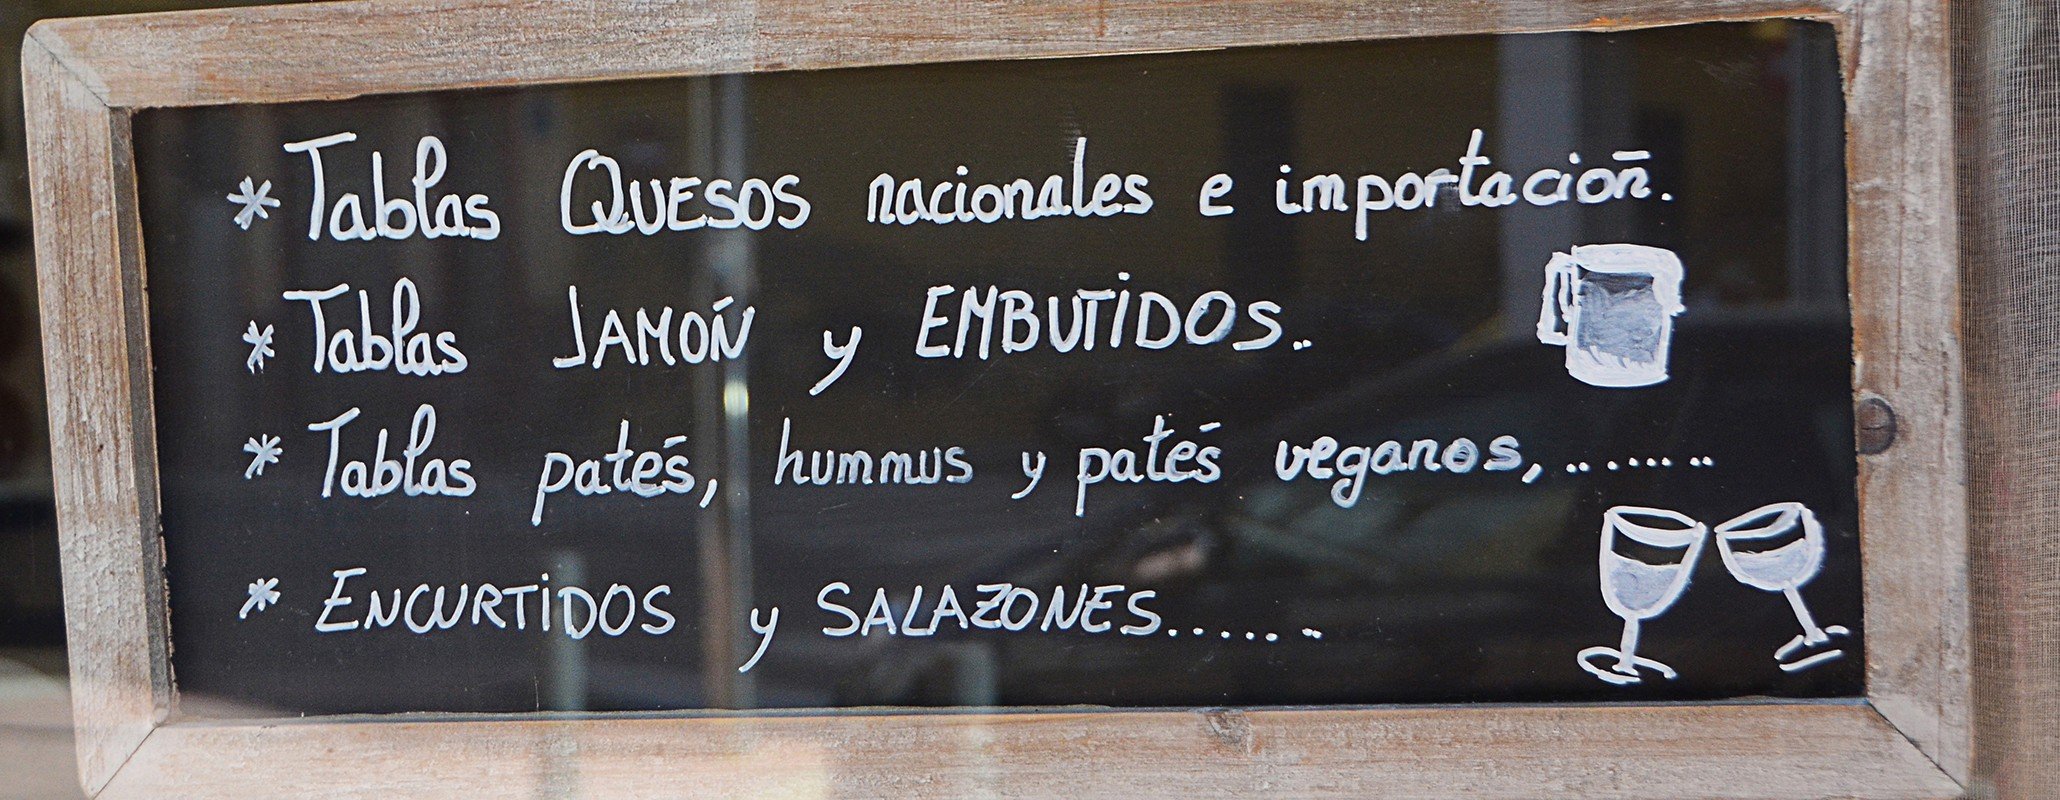 * Tablas QUESOS nacionales e importación.
* Tablas JAMÓN y EMBUTIDOS..
* Tablas patés, hummus y patés veganos,........
* ENCURTIDOS y SALAZONES.......